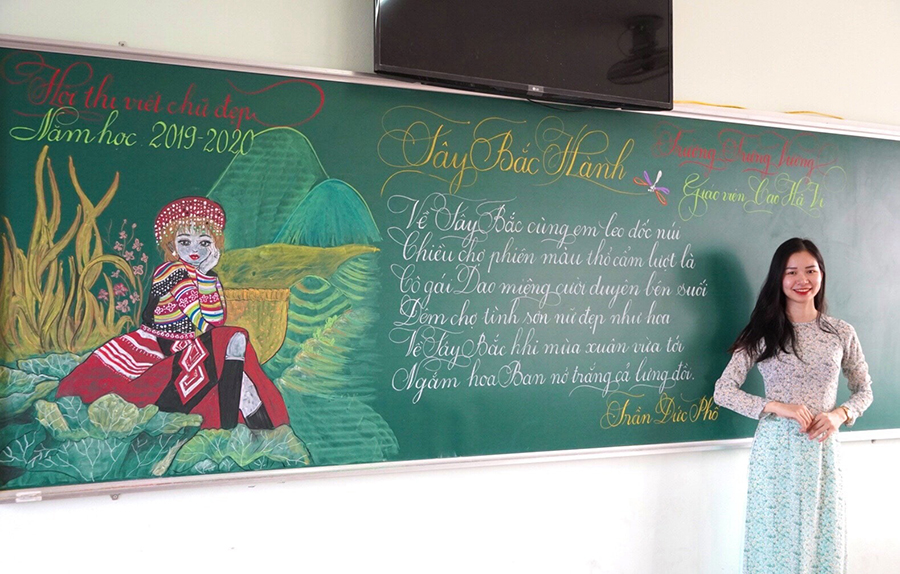 Hội thi viết chữ đẹp
Năm học 2019-2020
Tây Bắc Hành
Trường Trưng Vương
Giáo viên Cao Hà Vi
Về Tây Bắc cùng em leo dốc núi
Chiều chợ phiên màu thổ cẩm lượt là
Cô gái Dao miệng cười duyên bên suối
Đêm chợ tình sơn nữ đẹp như hoa
Về Tây Bắc khi mùa xuân vừa tới
Ngắm hoa Ban nở trắng cả lưng đồi.
Trần Đức Phổ
LG